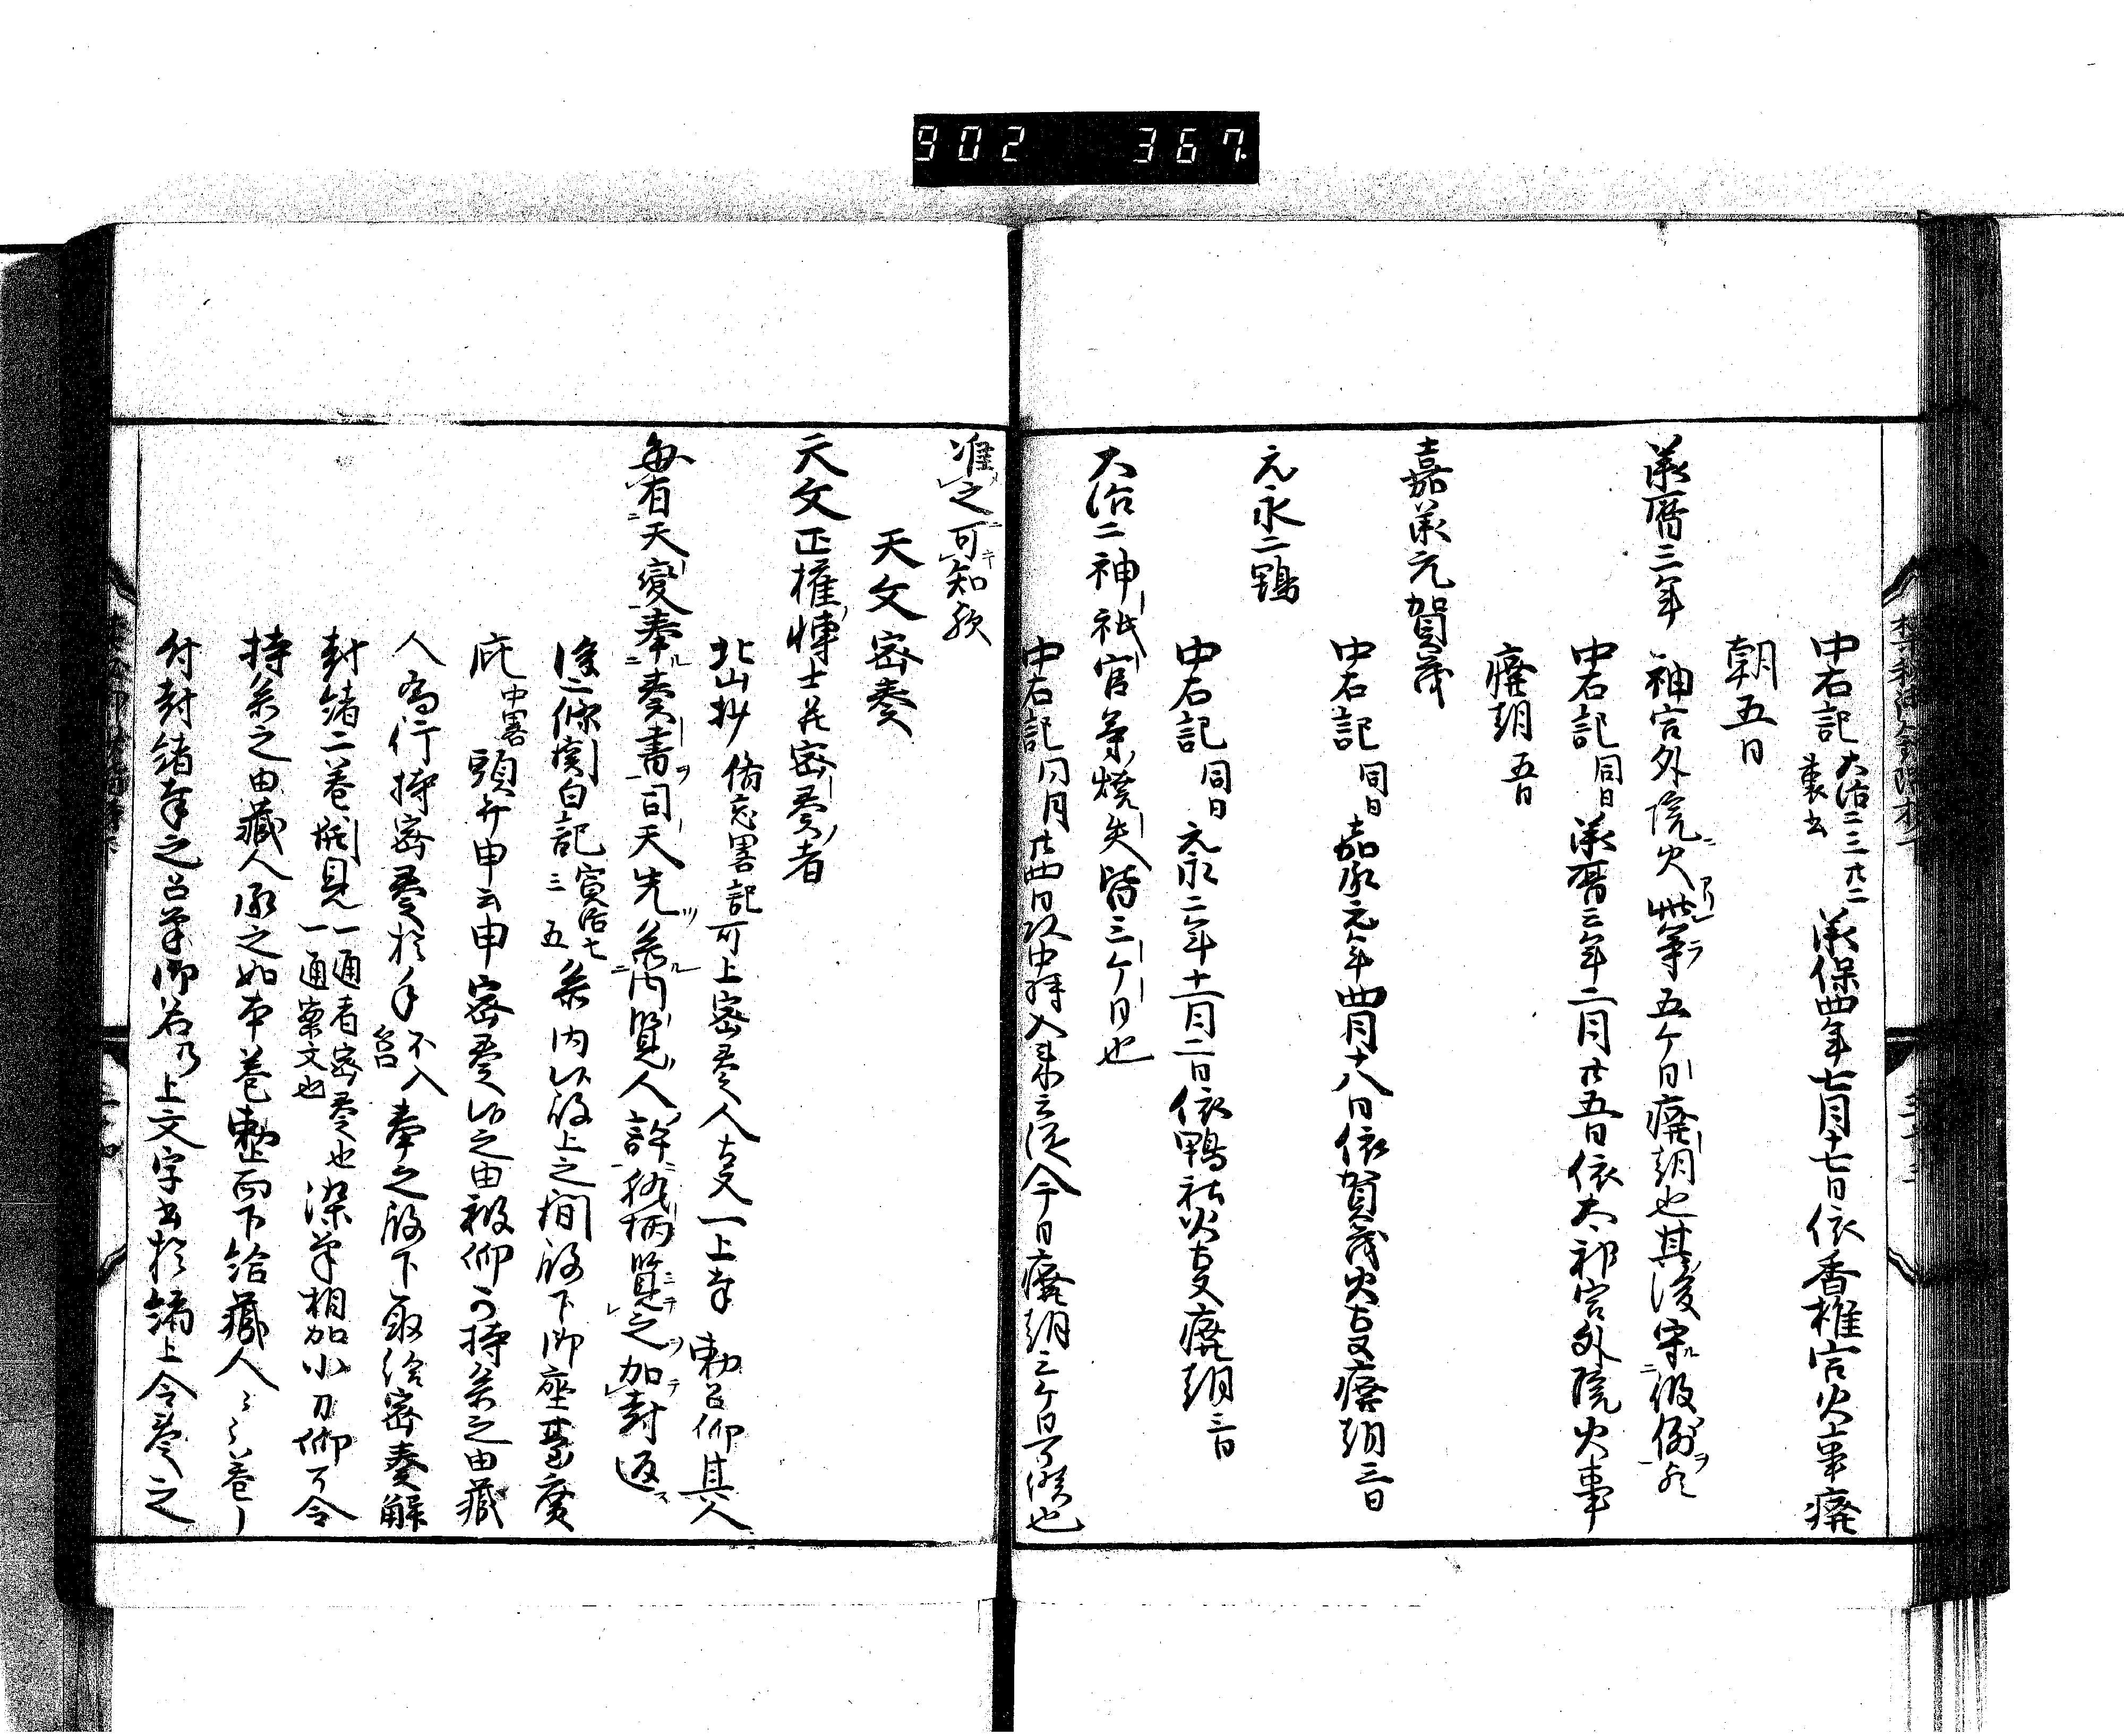 902 367
中右記 大治二三廿二裏書 承保四年七月十七日依香椎宮火事廃
朝五日
承暦三年 神宮外院火此等五ケ日廃朝也其後守彼例
中右記 同日 承暦三年二月廿五日依太神宮外院火事
廃朝五日
嘉承元賀茂
中右記 同日 嘉承元年四月十八日依賀茂火事廃朝三日
元永二鴨
中右記 同日 元永二年十一月二日依鴨社火事廃朝三日
大治二神祇官等焼失皆三ケ日也
中右記同月廿四日 入来云従今日廃朝三ケ日了也
准之可知歟
天文密奏
天文正権博士并密奏者
北山抄 備忘略記 可上密奏人事一上奉勅召仰其人
毎有天変奉奏書司天先参内覧人許執柄覧之加封返
後二條関白記 寛治七三五 参内以殿上之間殿下御座基広
庇 中略 頭弁申云申密奏 之由被仰可持参之由蔵
人為行持密奏於手 不入筥 奉之殿下取給密奏解
封緒二巻 見 一通者密奏也一通案文也 染筆相加小刀仰可令
持参之由蔵人承之如本巻 而下給蔵人々々巻
付封緒奉之召筆御名乃上文字書於緒上令奏之